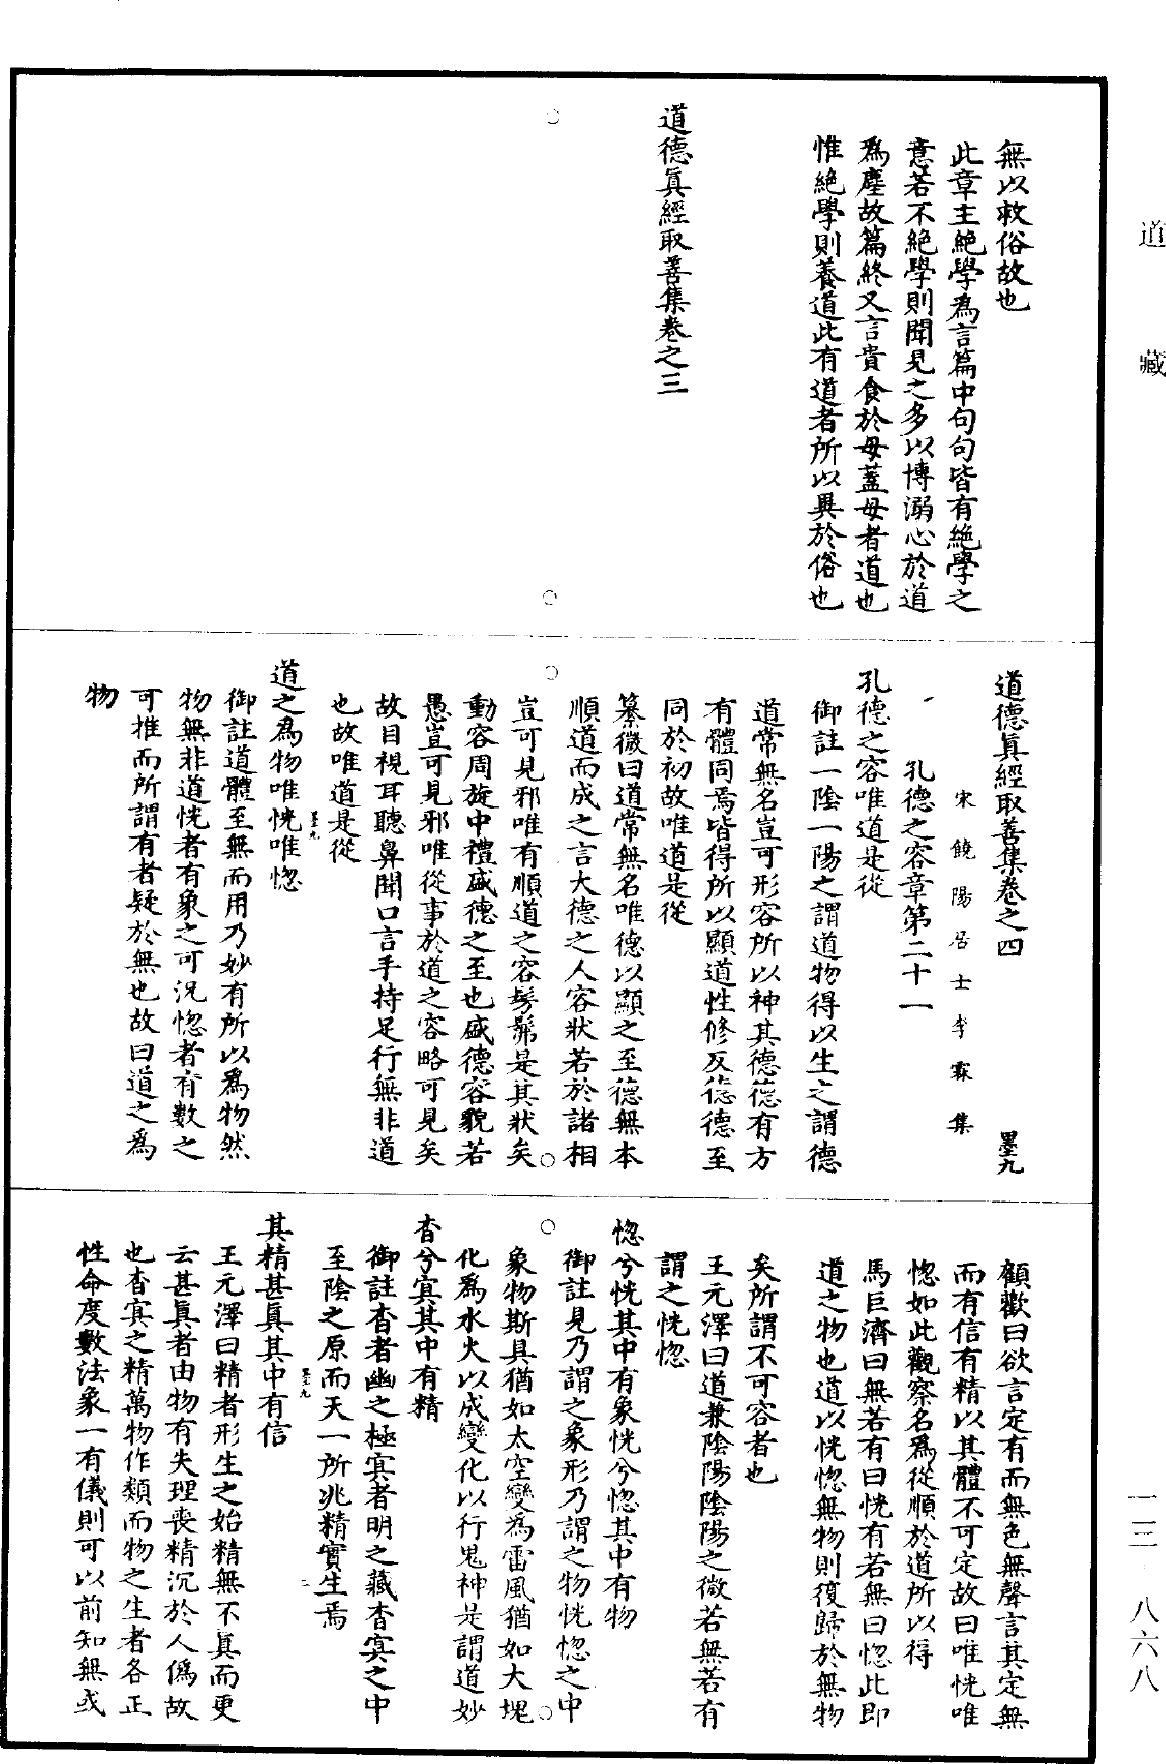 道藏
無以救俗故也
此章主絶學爲言篇中句句皆有絶學之
意若不絶學則聞見之多以博溺心於道
爲塵故篇終又言貴食於母蓋母者道也
惟絶學則養道此有道者所以異於俗也
道德眞經取善集卷之三
道德眞經取善集卷之四 墨九
宋饒陽居士李霖集
孔德之容章第二十一
孔德之容唯道是從
御註一陰一陽之謂道物得以生之謂德
道常無名豈可形容所以神其德德有方
有體同焉皆得所以顯道性修反德德至
同於初故唯道是從
纂微曰道常無名唯德以顯之至德無本
順道而成之言大德之人容狀若於諸相
豈可見邪唯有順道之容髣髴是其狀矣
動容周旋中禮盛德之至也盛德容貌若
愚豈可見邪唯從事於道之容略可見矣
故目視耳聽鼻聞口言手持足行無非道
也故唯道是從
墨九
道之爲物唯恍唯惚
御註道體至無而用乃妙有所以爲物然
物無非道恍者有象之可況惚者有數之
可推而所謂有者疑於無也故曰道之爲
物
顧歡曰欲言定有而無色無聲言其定無
而有信有精以其體不可定故曰唯恍唯
惚如此觀察名爲從順於道所以得
馬巨濟曰無若有曰恍有若無曰惚此即
道之物也道以恍惚無物則復歸於無物
矣所謂不可容者也
王元澤曰道兼陰陽陰陽之微若無若有
謂之恍惚
惚兮恍其中有象恍兮惚其中有物
御註見乃謂之象形乃謂之物恍惚之中
象物斯具猶如太空變爲雷風猶如大塊
化爲水火以成變化以行鬼神是謂道妙
杳兮冥其中有精
御註杳者幽之極冥者明之藏杳冥之中
至陰之原而天一所兆精實生焉
墨九
二
其精甚眞其中有信
王元澤曰精者形生之始精無不眞而更
云甚眞者由物有失理喪精沉於人僞故
也杳冥之精萬物作類而物之生者各正
性命度數法象一有儀則可以前知無或
一三·八六八